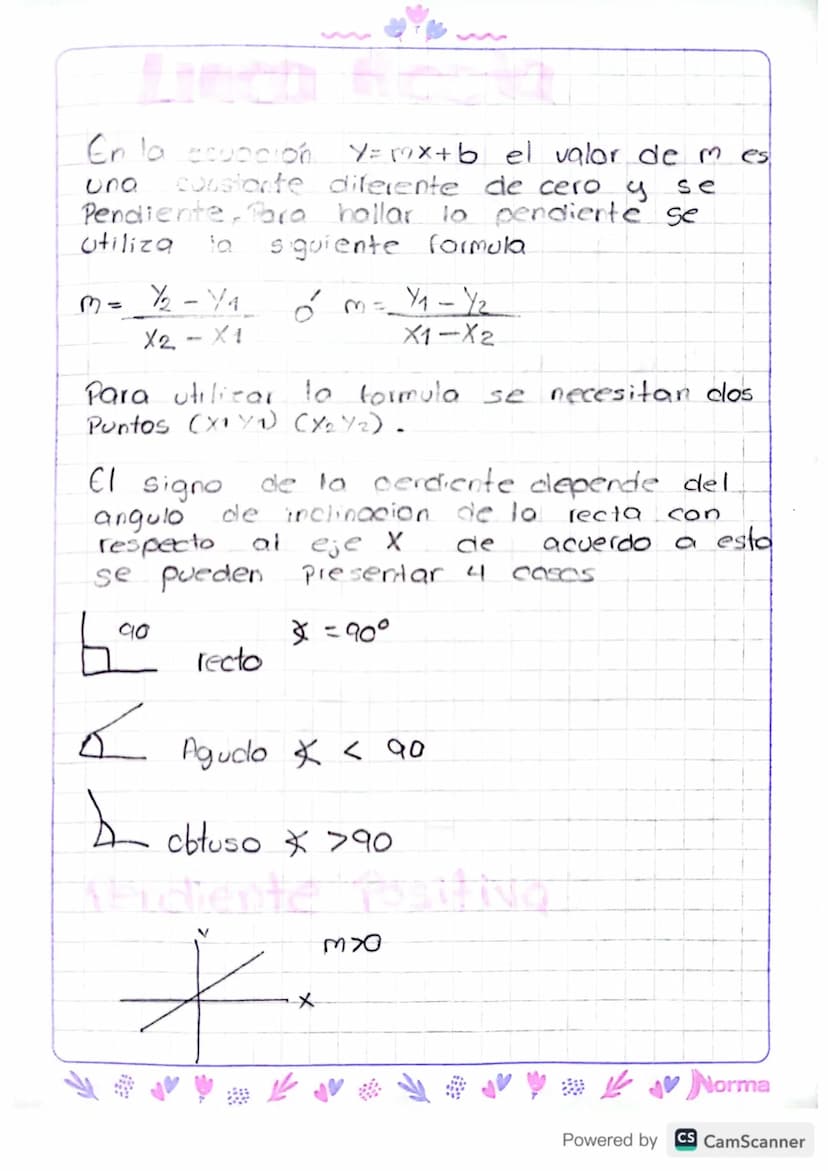 Linea Recta
En la ecuación y=mx+b el valor de m es
una constante diferente de cero y se
Pendiente. Para hallar la pendiente se
utiliza la siguiente formula
m= Y2 - Y1 / X2 - X1 ó m= Y1 - Y2 / X1-X2
Para utilizar la formula se necesitan dos
Puntos (X1 Y1) (X2 Y2).
El signo de la pendiente depende del
angulo de inclinacion de la recta con
respecto al eje X de acuerdo a esto
se pueden presentar 4 casos
90 recto ∡ =90°
Agudo ∡ < 90
obtuso ∡ >90
Pendiente Positiva
Y
m>0
X
Norma
Powered by CS CamScanner